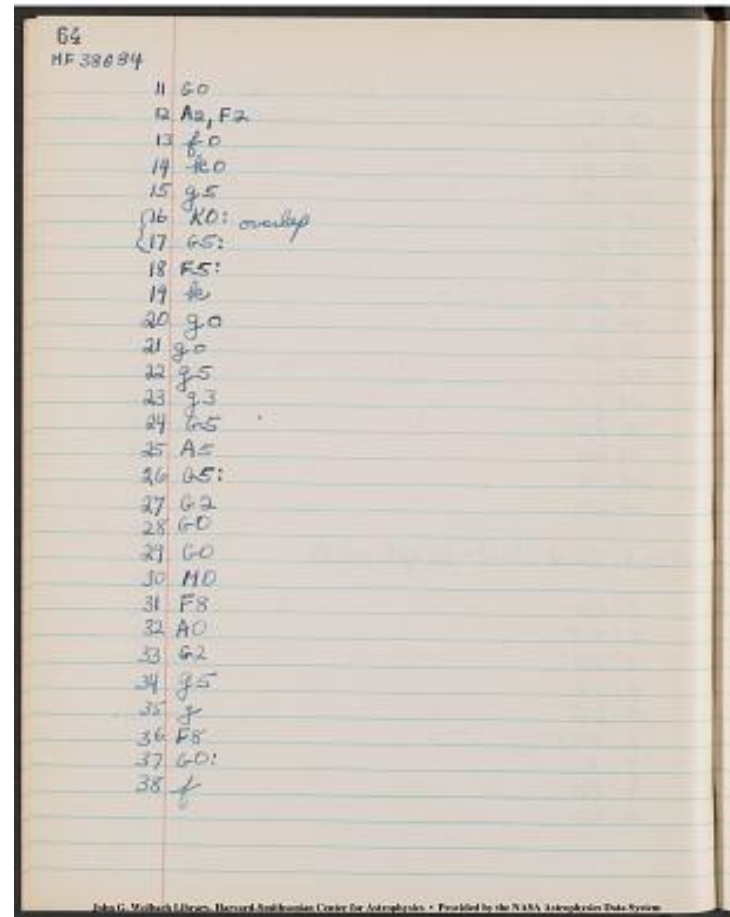 64
MF 38684
11 G0
12 A2, F2
13 f0
14 k0
15 g5
16 K0: overlap
17 G5:
18 F5:
19 k
20 g0
21 g0
22 g5
23 g3
24 G5
25 A5
26 G5:
27 G2
28 G0
29 G0
30 M0
31 F8
32 A0
33 G2
34 g5
35 g
36 F8
37 G0:
38 f
John G. Wolbach Library, Harvard-Smithsonian Center for Astrophysics • Provided by the NASA Astrophysics Data System